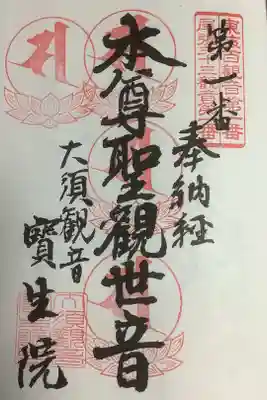 第一番
奉納経
本尊聖觀世音
大須観音
寶生院